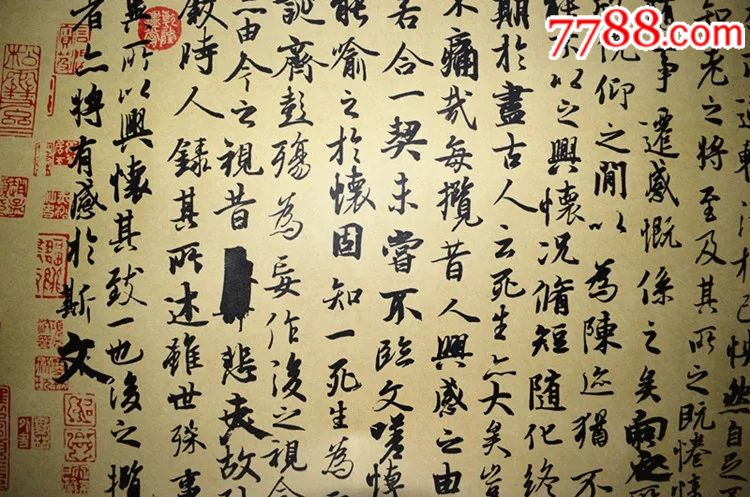 7788.com
於己快然自足不
知老之將至及其所之既惓情
事遷感慨係之矣向之所
俛仰之閒以為陳迹猶不
能不以之興懷況脩短隨化終
期於盡古人云死生亦大矣豈
不痛哉每攬昔人興感之由
若合一契未嘗不臨文嗟悼
能喻之於懷固知一死生為
誕齊彭殤為妄作後之視今
亦由今之視昔悲夫故列
敘時人錄其所述雖世殊事
異所以興懷其致一也後之攬
者亦將有感於斯文